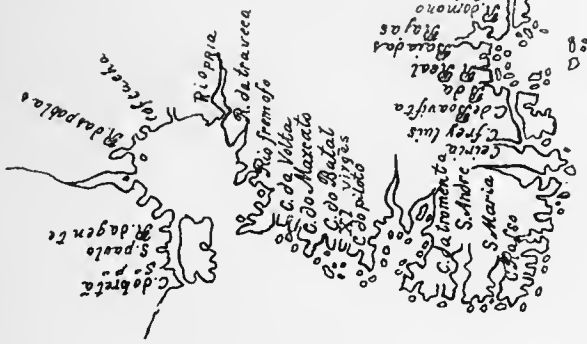 C. do bretã
S. pº
S. paulo
R. da gente
R. das poblas
costa cha
Rio PRIA
R. da traveca
Rio fermoso
C. da Volta
C. do Maxcato
C. do Batal
XI virgẽs
C. do piloto
C. da tromenta
S. Andre
S. Maria
C. Raso
Ceiria
C. frey luis
C. de boa vista
B. da
R. Real
Baia das
Raẏas
R. domono